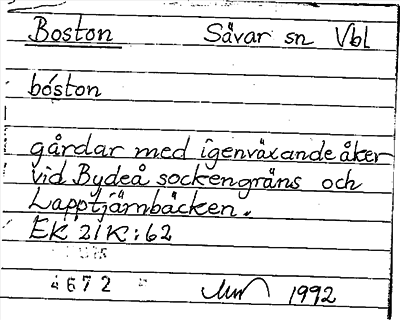 Boston Sävar sn Vbl
bóston
gårdar med igenväxande åker
vid Bydeå sockengräns och
Lapptjärnbäcken.
EK 21K:62
4672 1992